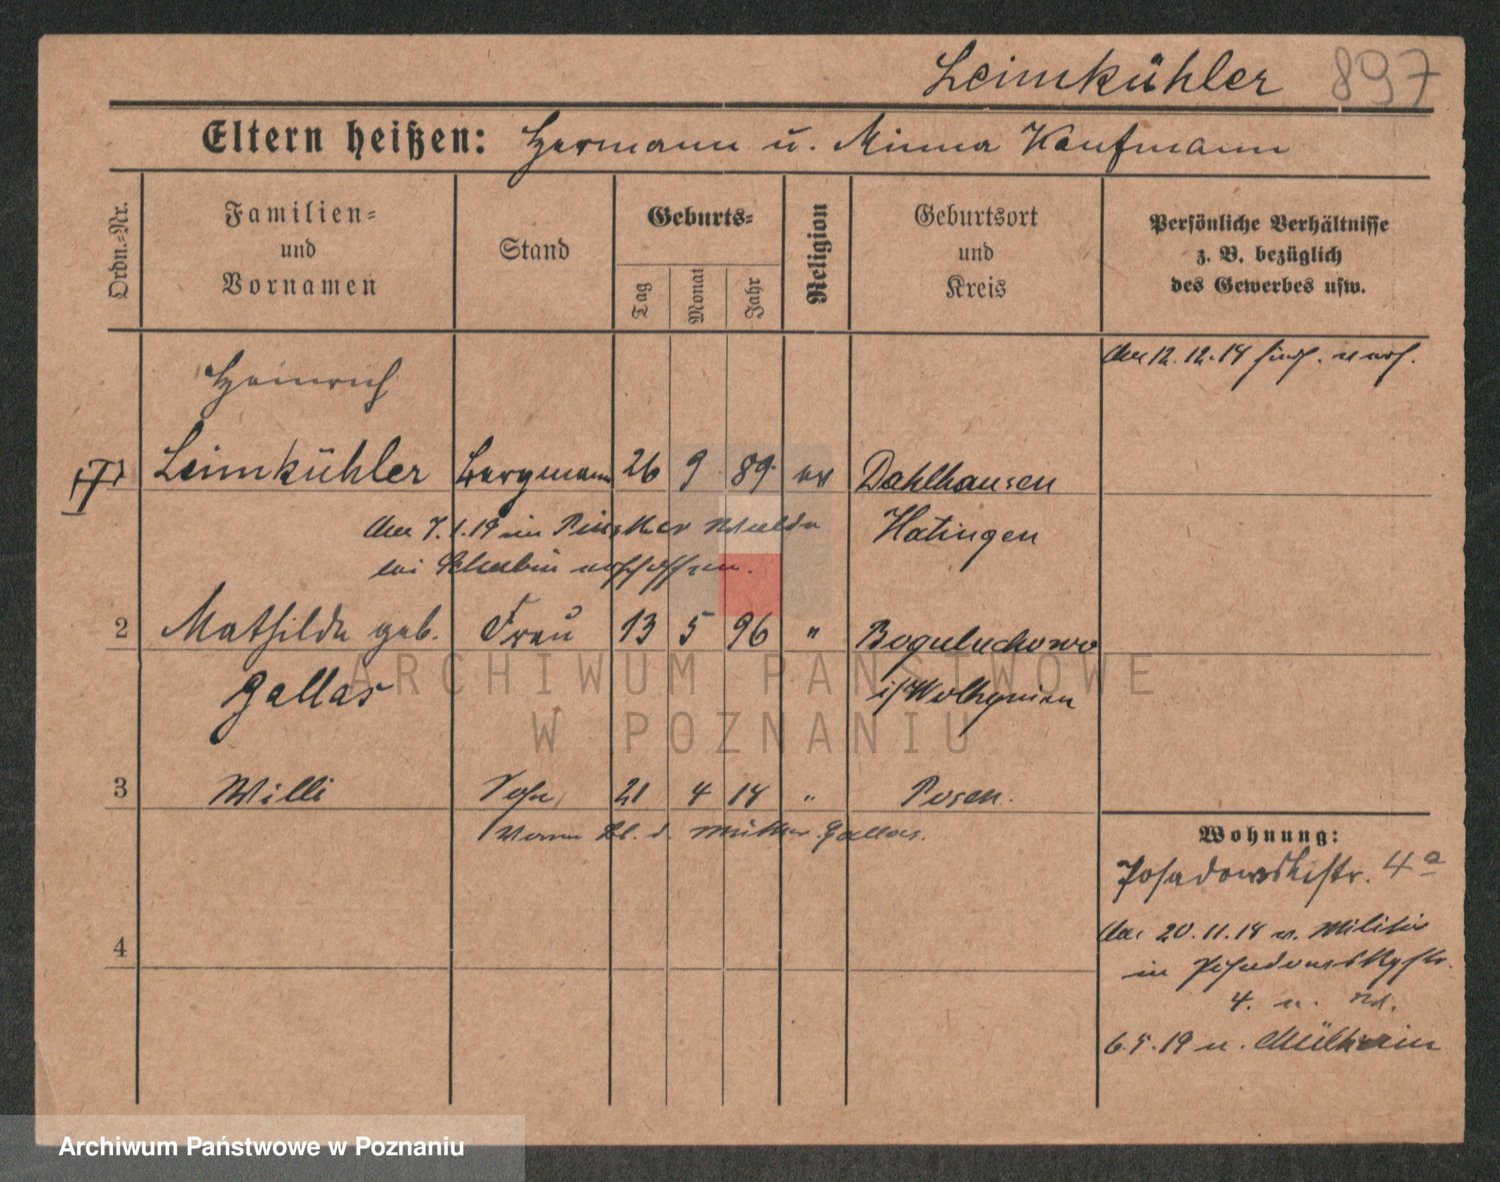 Leimkühler 897
Eltern heißen: Hermann u. Minna Kaufmann
Ordn.-Nr.
Familien-
und
Vornamen
Stand
Geburts-
Tag
Monat
Jahr
Religion
Geburtsort
und
Kreis
Persönliche Verhältnisse
z. B. bezüglich
des Gewerbes usw.
12. 12. 18
Heinrich
1 Leimkühler Bergmann 26 9 89 ev Dahlhausen
7.1.19 im Walde Hatingen
bei Schubin erschossen.
2 Mathilde geb. Frau 13 5 96 " Boguluchowo
Gallas i/Wolhynien
3 Willi Sohn 21 4 18 " Posen.
d. Mutter Gallas.
Wohnung:
Posadowskistr. 4a
20.11.18 v. Militär
in Posadowskystr.
4. u.
6.5.19 n. Mülheim
4
ARCHIWUM PAŃSTWOWE
W POZNANIU
Archiwum Państwowe w Poznaniu